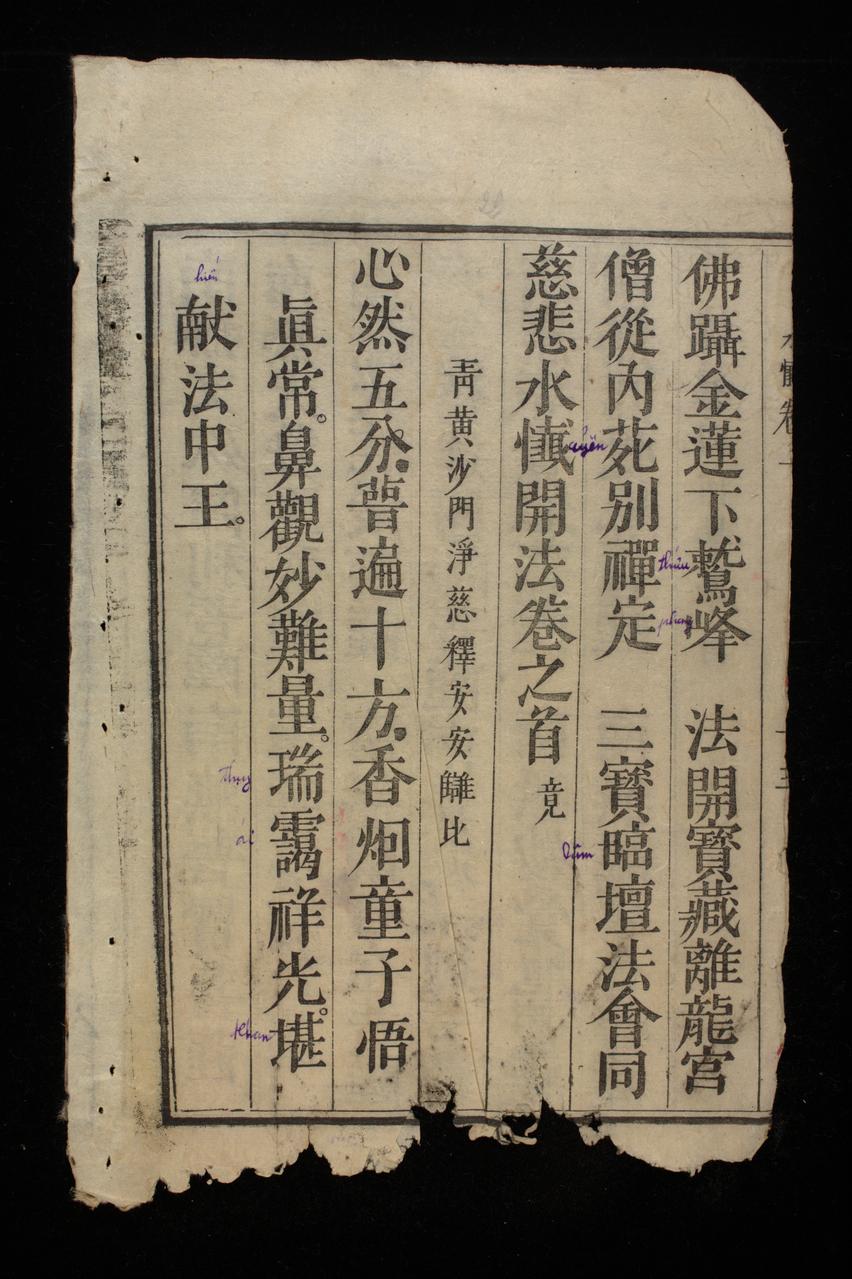 佛躡金蓮下鷲峰　法開寶藏離龍宮
僧從內苑別禪定　三寶臨壇法會同
慈悲水懴開法卷之首 竟
青黄沙門淨慈釋安安
心然五分。普遍十方。香烟童子悟
眞常。鼻觀妙難量。瑞靄祥光。堪
献法中王。
thứu
phung
uyển
lâm
thụy
ái
kham
hiến